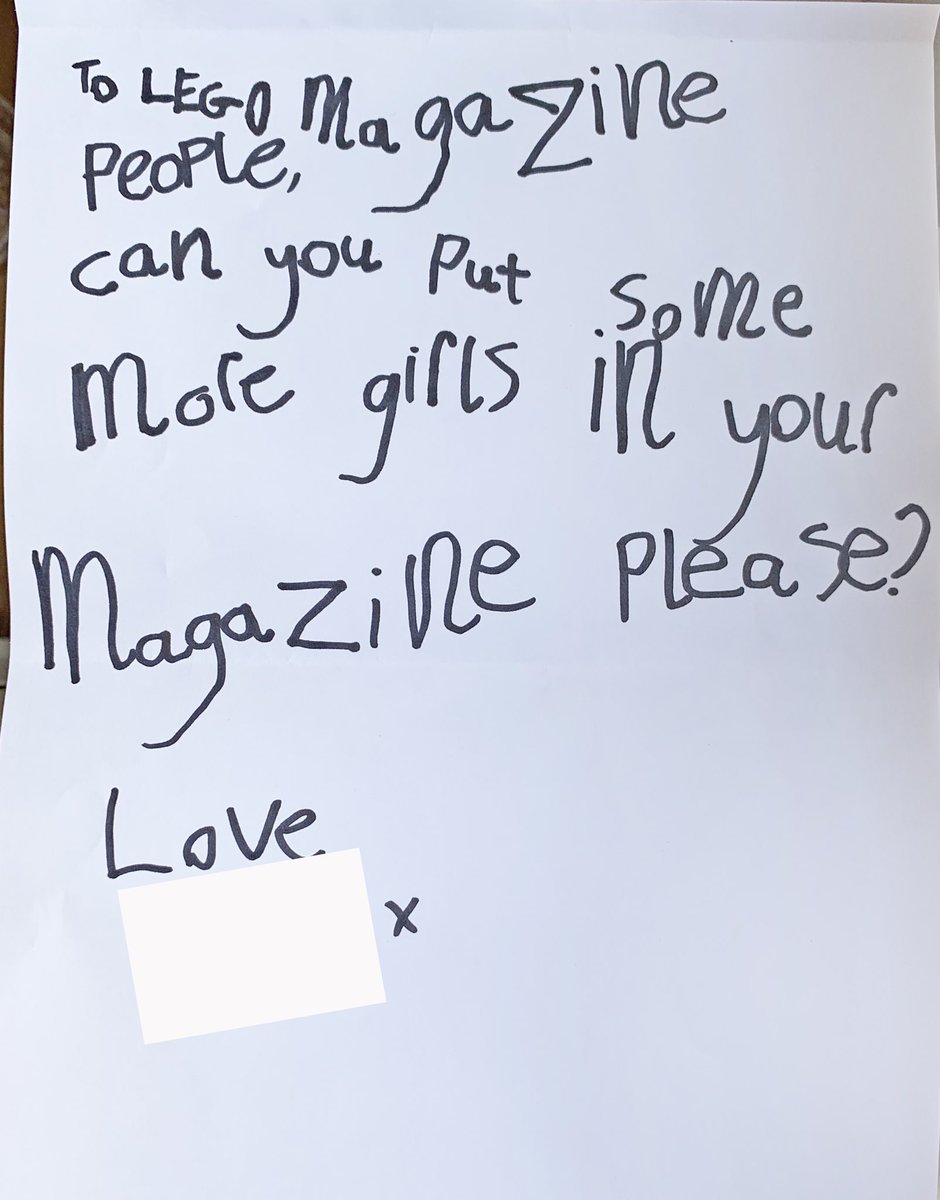 To LEGO Magazine
People,
can you Put some
More girls in your
Magazine Please?
Love
x